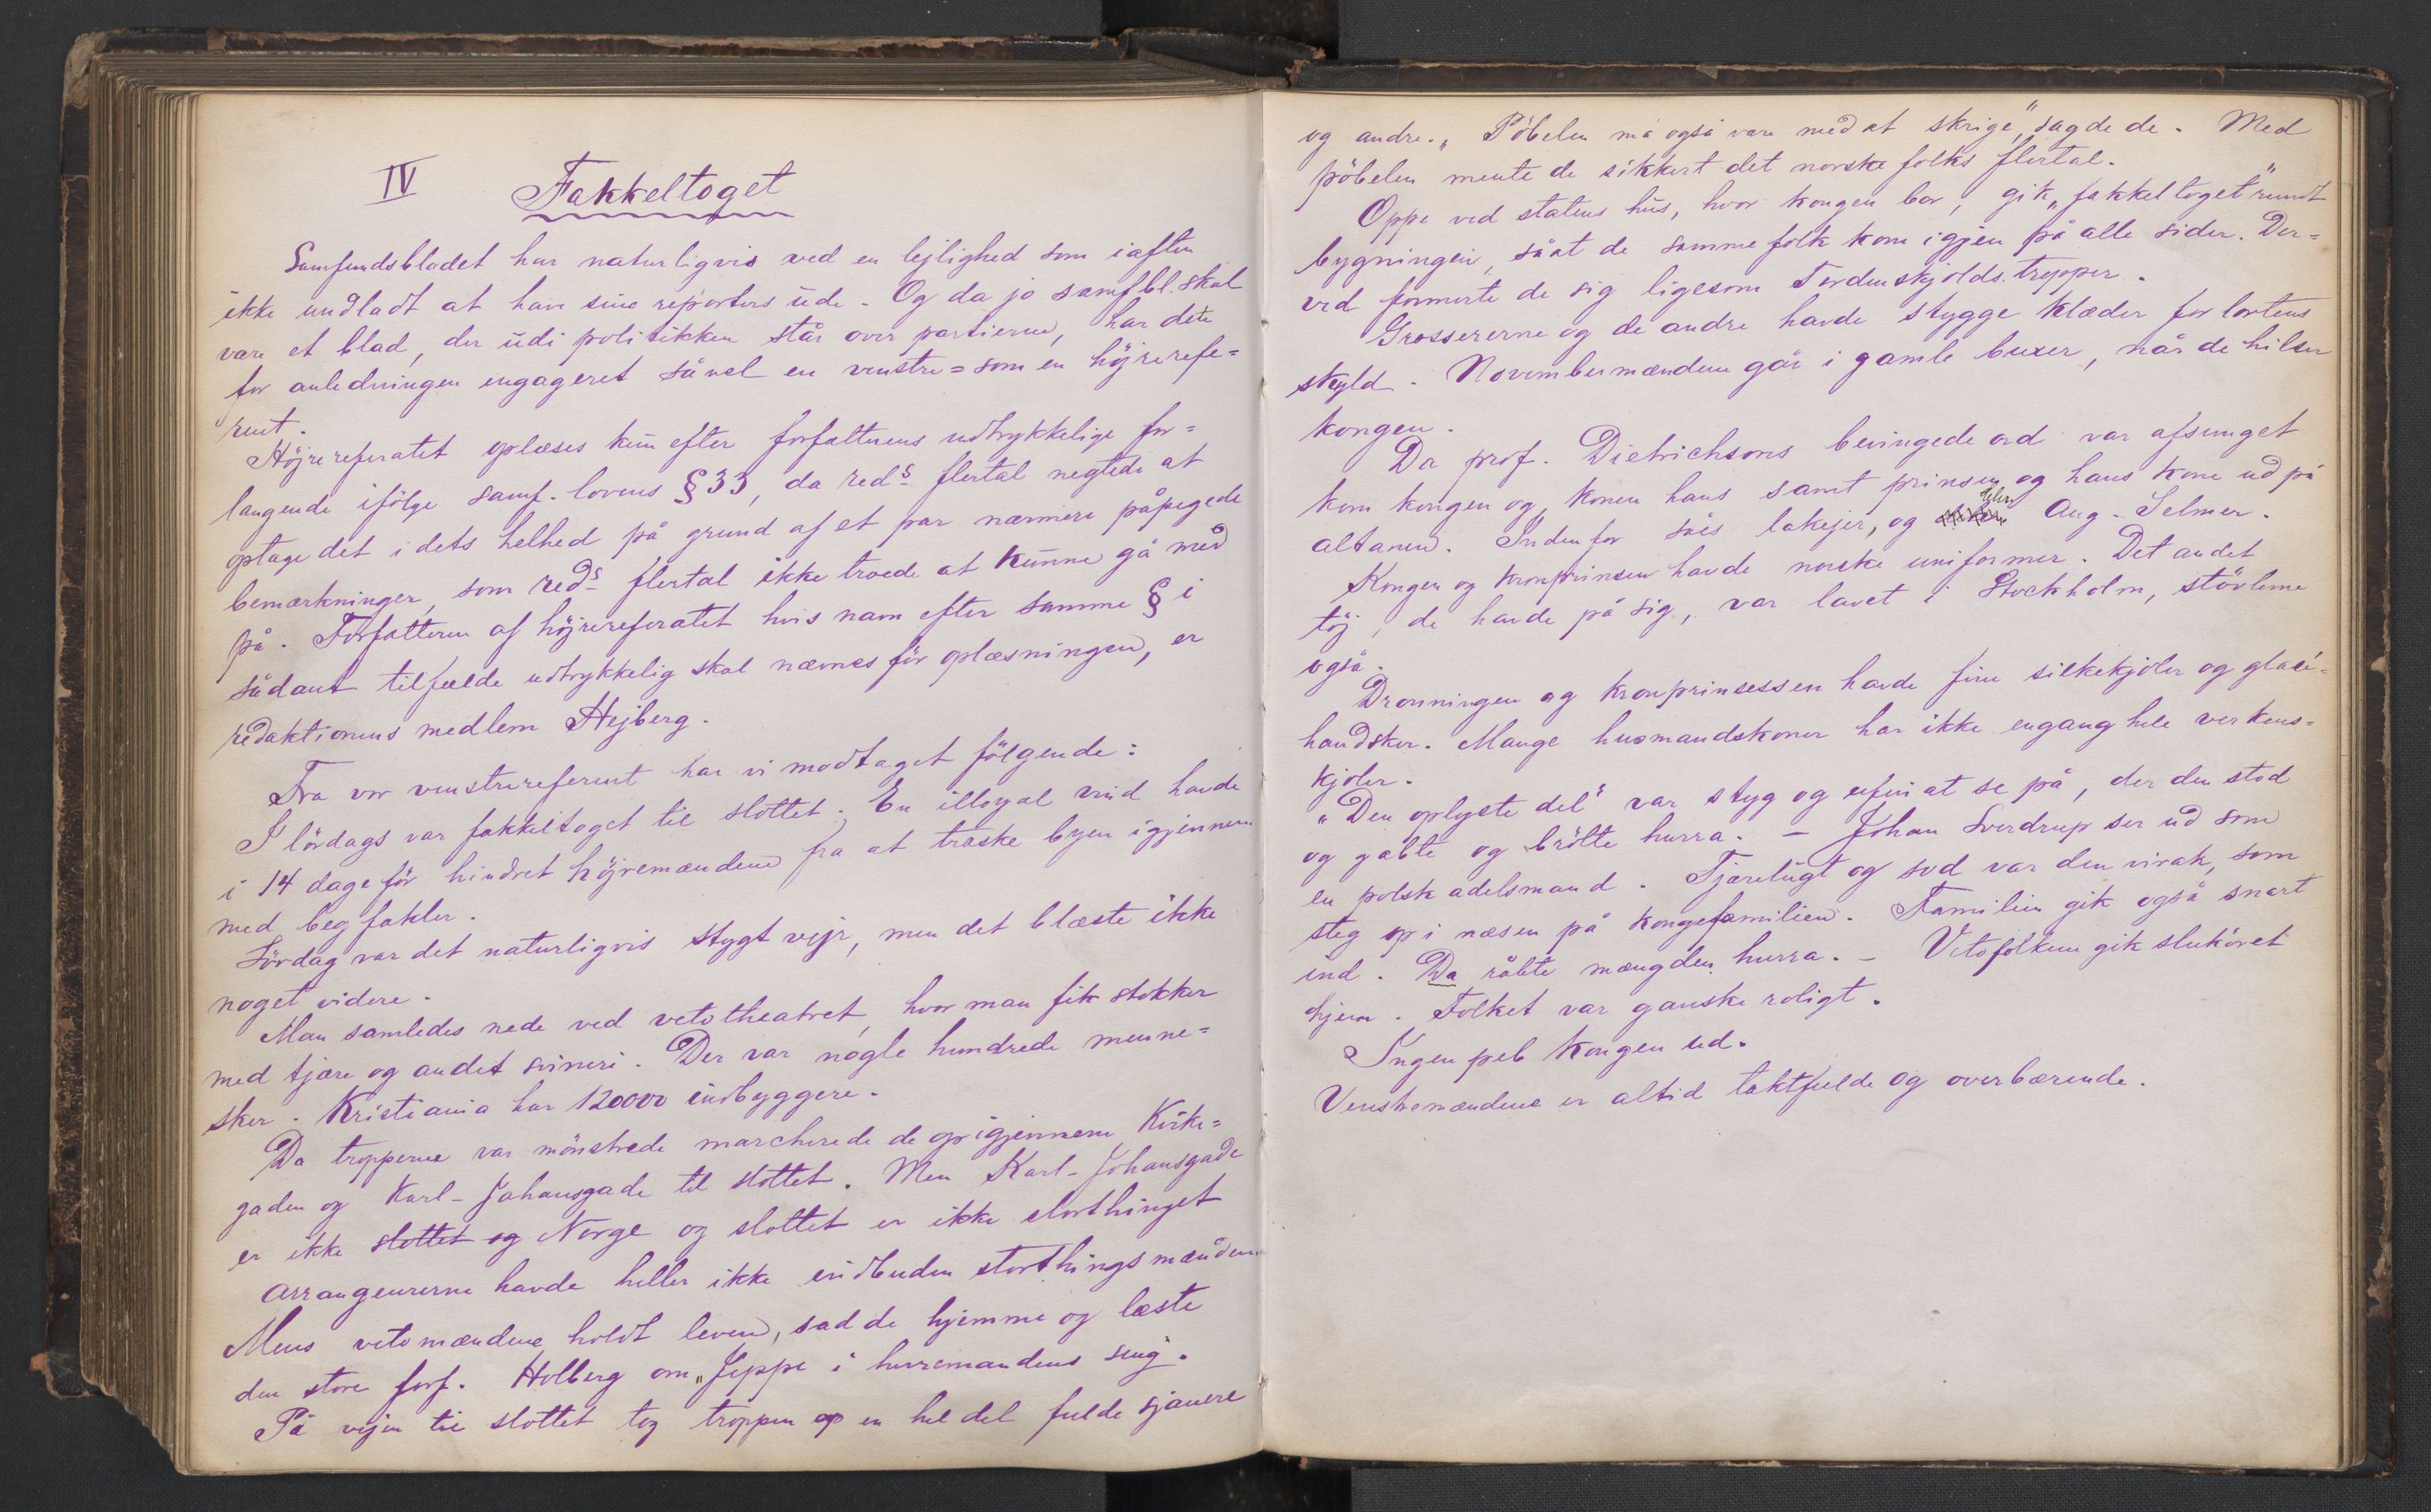 IV Fakkeltoget
Samfundsbladet har naturligvis ved en lejlighed som iaften
ikke undladt at have sine reporters ude. Og da jo samf.bl. skal
være et blad, der udi politikken står over partierne, har dette
for anledningen engageret såvel en venstre= som en höjrerefe=
rent.
Höjrereferatet oplæses kun efter forfatterens udtrykkelige for=
langende ifölge samf.-lovens § 33, da reds flertal negtede at
optage det i dets helhed på grund af et par nærmere påpegede
bemærkninger, som reds flertal ikke troede at kunne gå med
på. Forfatteren af höjrereferatet hvis navn efter samme § i
sådant tilfælde udtrykkelig skal nævnes för oplæsningen, er
redaktionens medlem Hejberg.
Fra vor venstrereferent har vi modtaget fölgende:
I lördags var fakkeltoget til slottet. En illoyal vind havde
i 14 dage för hindret höjremændene fra at traske byen igjennem
med begfakler.
Lördag var det naturligvis stygt vejr, men det blæste ikke
noget videre.
Man samledes nede ved vetotheatret, hvor man fik stokker
med tjære og andet svineri. Der var nogle hundrede menne=
sker. Kristiania har 120000 indbyggere.
Da tropperne var mönstrede marcherede de op igjennem Kirke=
gaden og Karl-Johansgade til slottet. Men Karl-Johansgade
er ikke slottet og Norge og slottet er ikke storthinget
Arrangeurerne havde heller ikke indbuden storthingsmændene
Mens vetomændene holdt leven, sad de hjemme og læste
den store forf. Holberg om „Jeppe i herremandens seng".
På vejen til slottet tog troppen op en hel del fulde sjauere
og andre. „Pöbelen må også være med at skrige", sagde de. Med
pöbelen mente de sikkert det norske folks flertal.
Oppe ved statens hus, hvor kongen bor, gik „fakkeltoget" rundt
bygningen, såat de samme folk kom igjen på alle sider. Der=
ved formerte de sig ligesom Tordenskjolds tropper.
Grossererne og de andre havde stygge klæder for lortens
skyld. Novembermændene går i gamle buxer, når de hilser
kongen.
Da prof. Dietrichsons bevingede ord var afsunget
kom kongen og konen hans samt prinsen og hans kone ud på
altanen. Indenfor såes lakejer, og Aug. Selmer.
Kongen og kronprinsen havde norske uniformer. Det andet
töj, de havde på sig, var lavet i Stockholm, stövlerne
også.
Dronningen og kronprinsessen havde fine silkekjoler og glacé-
handsker. Mange husmandskoner har ikke engang hele verkens-
kjoler.
„Den oplyste del" var styg og ufin at se på, der den stod
og gabte og brölte hurra. — Johan Sverdrup ser ud som
en polsk adelsmand. Tjærelugt og sod var den virak, som
steg op i næsen på kongefamilien. Familien gik også snart
ind. Da råbte mængden hurra. — Vetofolkene gik sluköret
hjem. Folket var ganske roligt.
Ingen peb kongen ud.
Venstremændene er altid taktfulde og overbærende.